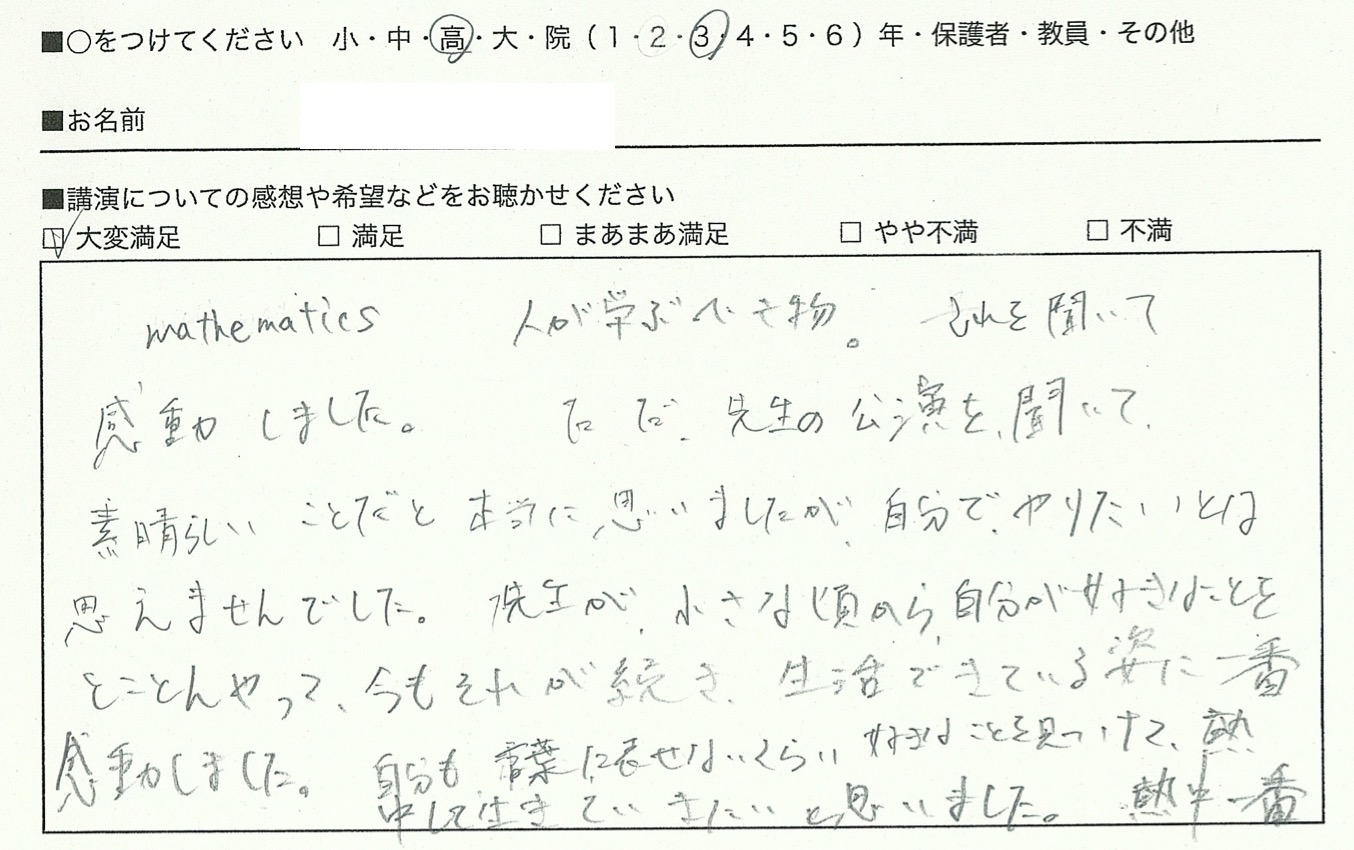 ■○をつけてください 小・中・高・大・院（1・2・3・4・5・6）年・保護者・教員・その他
■お名前
■講演についての感想や希望などをお聴かせください
☑ 大変満足 □ 満足 □ まあまあ満足 □ やや不満 □ 不満
mathematics 人が学ぶべき物。 それを聞いて
感動しました。 ただ、先生の公演を、聞いて、
素晴らしいことだと本当に思いましたが、自分で、やりたいとは
思えませんでした。 先生が、小さな頃から、自分が好きなことを
とことんやって、今もそれが続き、生活できている姿に一番
感動しました。 自分も言葉に表せないくらい好きなことを見つけて、熱
中して生きていきたいと思いました。 熱中一番